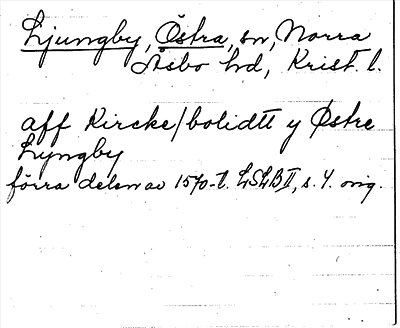 Ljungby, Östra, sn, Norra
Åsbo hd, Krist. l.
aff Kircke/bolidtt y Østre
Lyngby
förra delen av 1570-t. LSLB II, s. 4. orig.